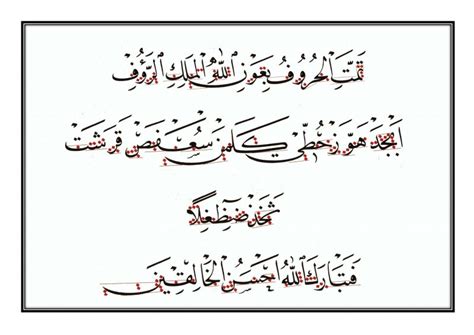 تَمَّتِ الْحُرُوفُ بِعَوْنِ اللّٰهِ الْمَلِكِ الرَّؤُفِ
اَبْجَدْ هَوَّزْ حُطِّي كَلَمَنْ سَعْفَصْ قَرَشَتْ
ثَخَذْ ضَظِغْلًا
فَتَبَارَكَ اللّٰهُ اَحْسَنُ الْخَالِقِينَ